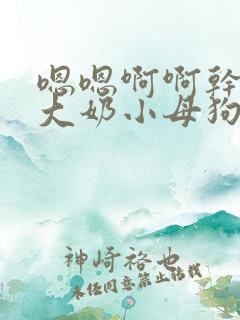 嗯嗯啊啊幹
大奶小母狗
神崎裕也
未经同意禁止转载